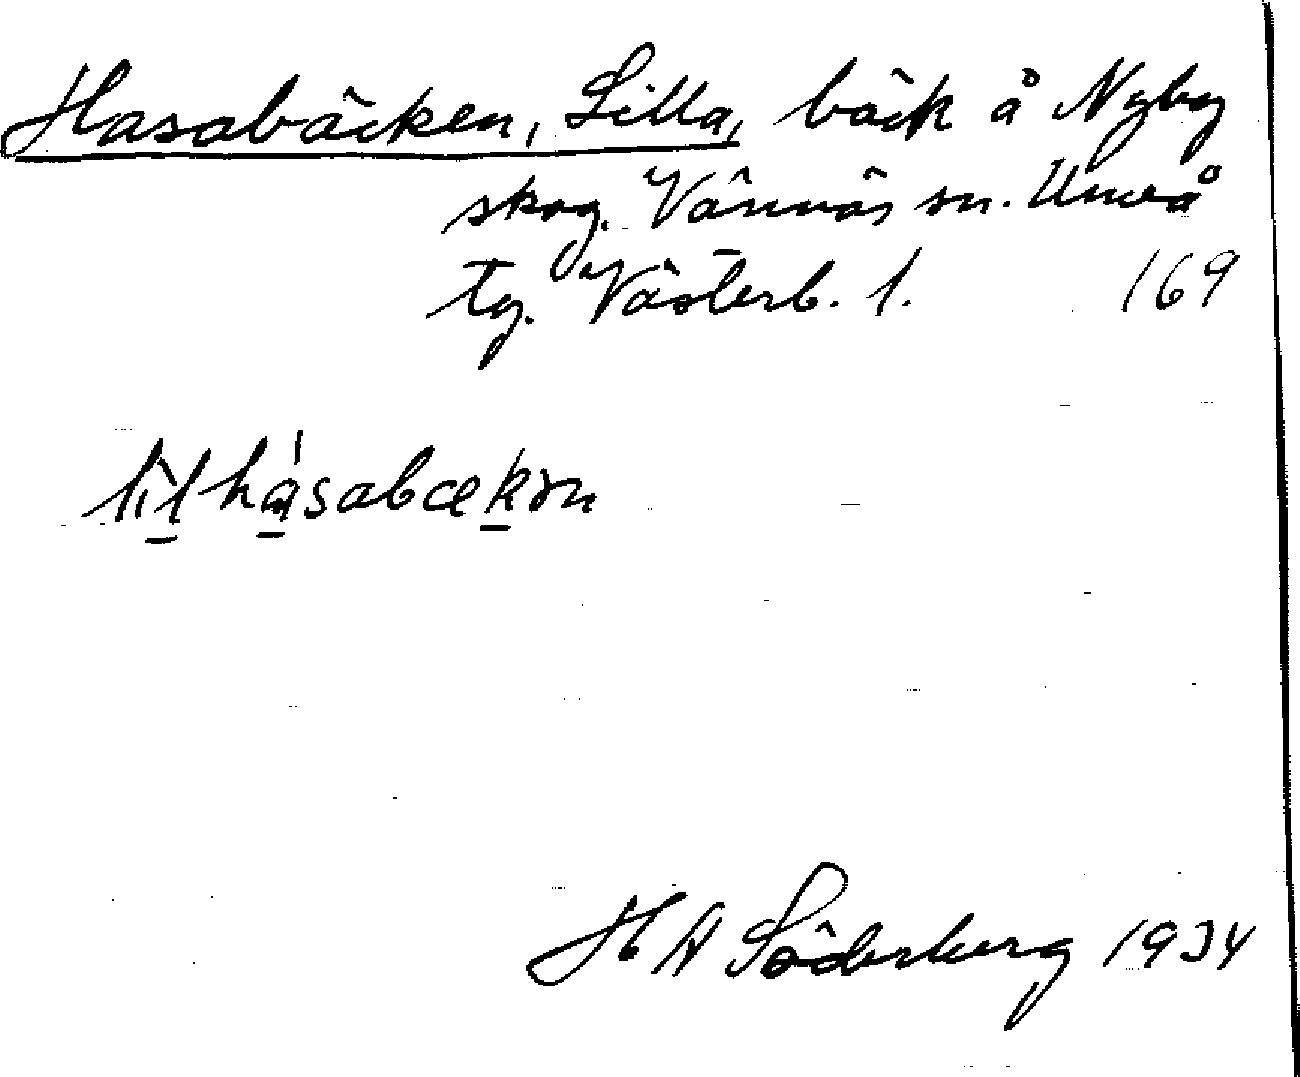 Hasabäcken, Lilla, bäck å Nyby
skog. Vännäs sn. Umeå
tg. Västerb. l. 169
lìlhásabækən
H A Söderberg 1934